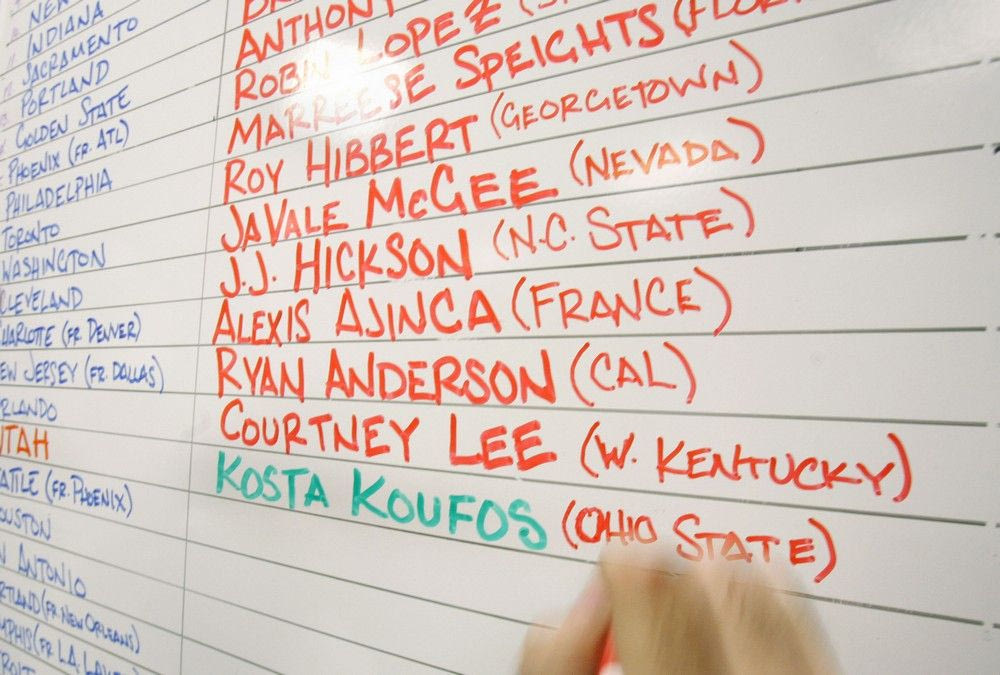 NEW
INDIANA
SACRAMENTO
PORTLAND
GOLDEN STATE
PHOENIX (FR. ATL)
PHILADELPHIA
TORONTO
WASHINGTON
CLEVELAND
CHARLOTTE (FR. DENVER)
EW JERSEY (FR. DALLAS)
RLANDO
UTAH
ATTLE (FR. PHOENIX)
OUSTON
N ANTONIO
RTLAND (FR. NEW ORLEANS)
MPHIS (FR L.A. LAKE
ROIT
BR
ANTHONY
ROBIN LOPEZ (S
MARREESE SPEIGHTS (FLOR
ROY HIBBERT (GEORGETOWN)
JAVALE MCGEE (NEVADA)
J.J. HICKSON (N.C. STATE)
ALEXIS AJINCA (FRANCE)
RYAN ANDERSON (CAL)
COURTNEY LEE (W. KENTUCKY)
KOSTA KOUFOS (OHIO STATE)